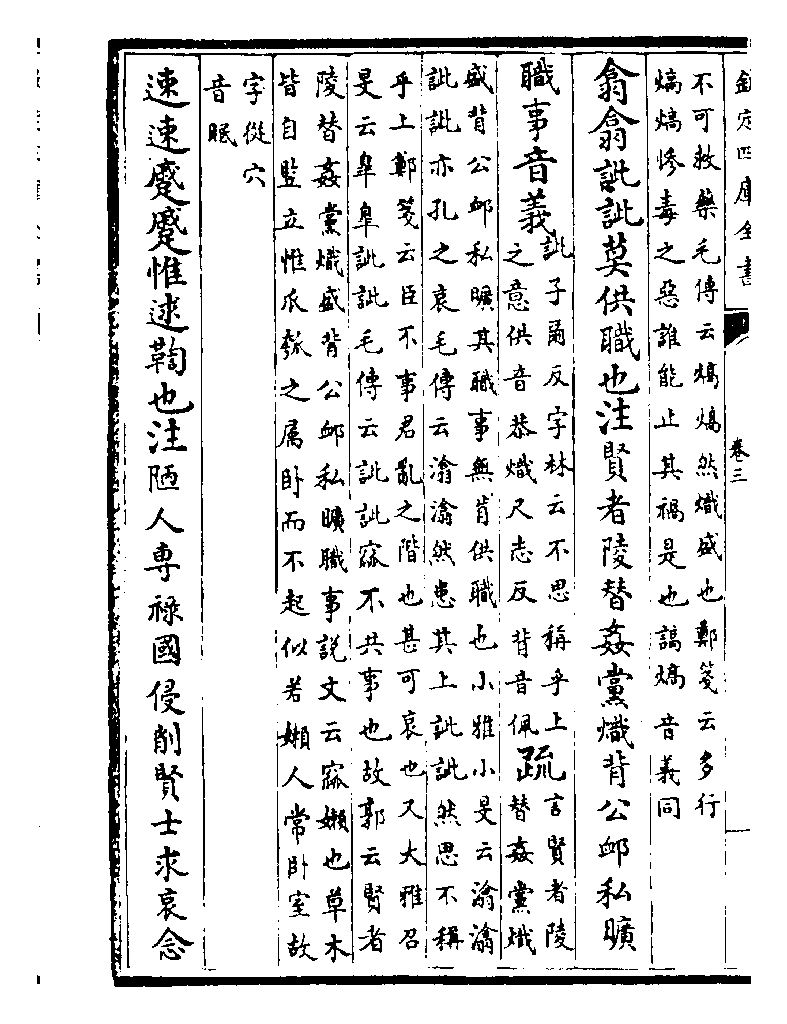 欽定四庫全書
卷三
不可救藥毛傳云熇熇然熾盛也鄭箋云多行
熇熇慘毒之惡誰能止其禍是也謞熇音義同
翕翕訿訿莫供職也注賢者陵替姦黨熾背公卹私曠
職事音義
訿子爾反字林云不思稱乎上
之意供音恭熾尺志反背音佩
疏
言賢者陵
替姦黨熾
盛背公卹私曠其職事無肯供職也小雅小旻云潝潝
訿訿亦孔之哀毛傳云潝潝然患其上訿訿然思不稱
乎上鄭箋云臣不事君亂之階也甚可哀也又大雅召
旻云臯臯訿訿毛傳云訿訿窳不共事也故郭云賢者
陵替姦黨熾盛背公卹私曠職事説文云窳嬾也草木
皆自豎立惟瓜瓠之属卧而不起似若嬾人常卧室故
字從穴
音眠
速速蹙蹙惟逑鞫也注陋人専禄國侵削賢士求哀念